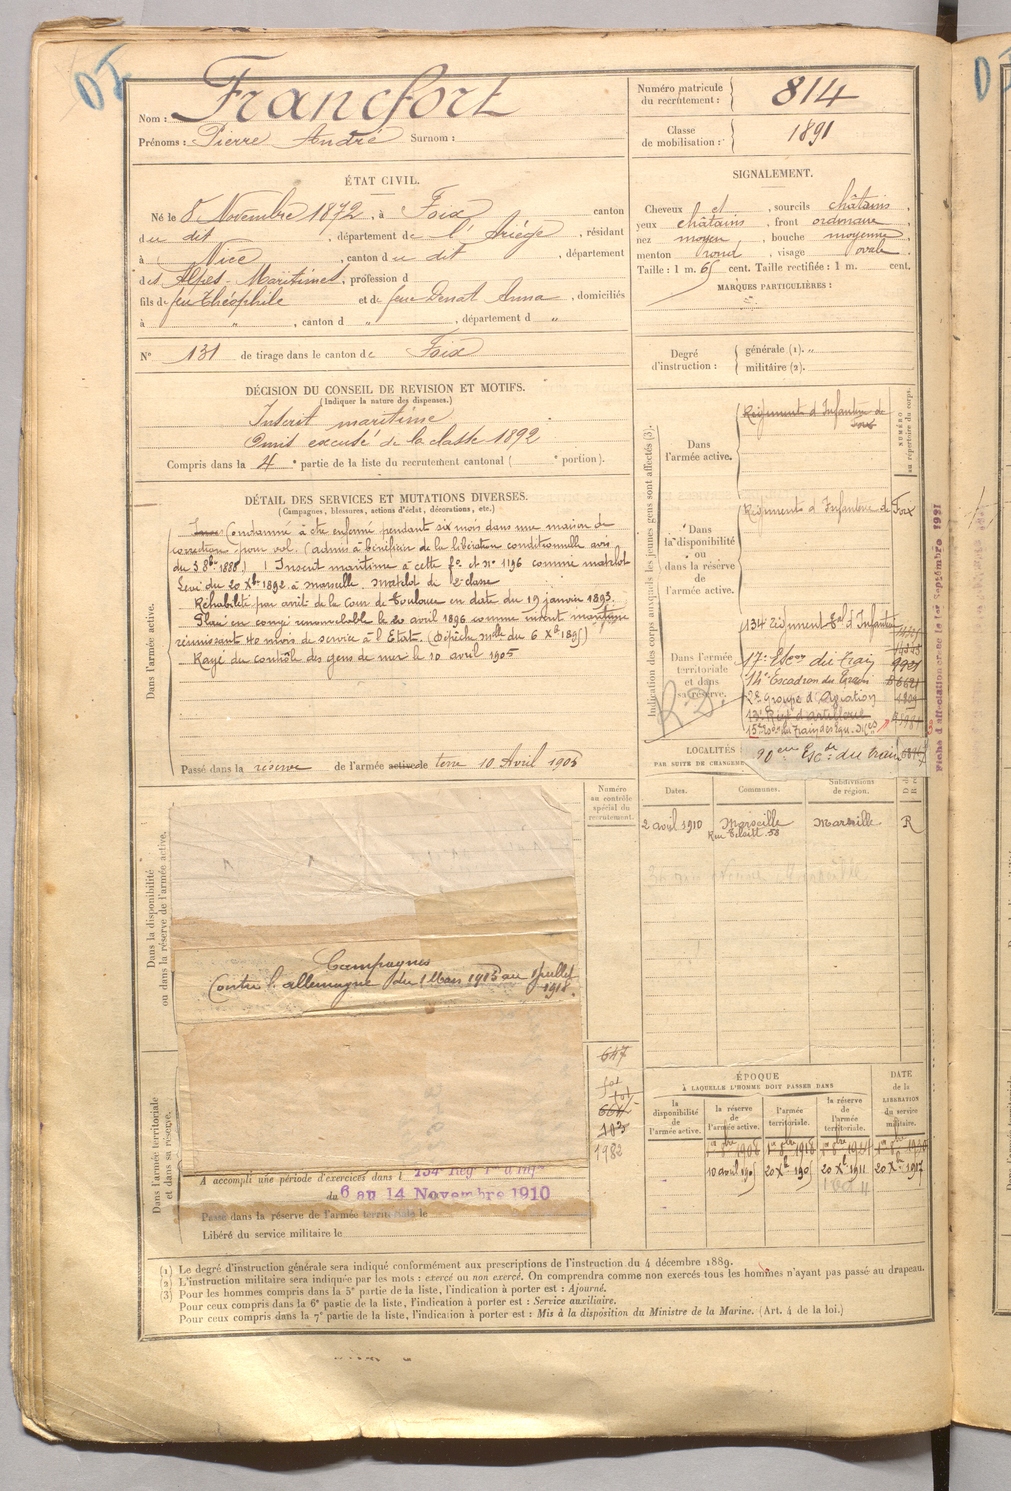 Nom : Francfort
Prénoms : Pierre André Surnom :
Numéro matricule du recrutement : 814
Classe de mobilisation : 1891
ÉTAT CIVIL.
Né le 8 Novembre 1872, à Foix canton
du dit, département de l'Ariège, résidant
à Nice, canton du dit, département
des Alpes-Maritimes, profession d
fils de feu Théophile et de feue Denat Anna, domiciliés
à „ , canton d „ , département d „
N° 131 de tirage dans le canton de Foix
SIGNALEMENT.
Cheveux et , sourcils châtains,
yeux châtains, front ordinaire
nez moyen, bouche moyenne
menton rond, visage ovale
Taille : 1 m. 65 cent. Taille rectifiée : 1 m. cent.
MARQUES PARTICULIÈRES :
Degré d'instruction : générale (1). „
militaire (2).
DÉCISION DU CONSEIL DE REVISION ET MOTIFS.
(Indiquer la nature des dispenses.)
Inscrit maritime
Omis excusé de la classe 1892
Compris dans la 4e partie de la liste du recrutement cantonal ( e portion).
DÉTAIL DES SERVICES ET MUTATIONS DIVERSES.
(Campagnes, blessures, actions d'éclat, décorations, etc.)
Condamné à être enfermé pendant six mois dans une maison de
correction pour vol. (admis à bénéficier de la libération conditionnelle avis
du 3 8bre 1888) Inscrit maritime à cette fo et n° 1196 comme matelot
Levé du 20 Xbre 1892 à Marseille. Matelot de 2e classe
Réhabilité par arrêt de la Cour de Toulouse en date du 19 janvier 1893.
Placé en congé renouvelable le 20 avril 1896 comme inscrit maritime
réunissant 40 mois de service à l'Etat. (Dépêche mlle du 6 Xbre 1895)
Rayé du contrôle des gens de mer le 10 avril 1905
Dans l'armée active.
Passé dans la réserve de l'armée active de terre 10 Avril 1905
Indication des corps auxquels les jeunes gens sont affectés (3).
NUMÉRO au répertoire du corps.
Dans l'armée active.
Régiment d'Infanterie de Foix
Dans la disponibilité ou dans la réserve de l'armée active.
Régiment d'Infanterie de Foix
Dans l'armée territoriale et dans sa réserve.
134 Régiment Tal d'Infanterie
17e Escon du Train
14e Escadron du Train
2e Groupe d'Aviation
13e Régt d'artillerie
20eme Escon du train
Fiche d'affectation créée le 1er Septembre 1921
LOCALITÉS
PAR SUITE DE CHANGEMENT
Dates. Communes. Subdivisions de région.
2 avril 1910 Marseille Marseille R
Numéro au contrôle spécial du recrutement.
647
1982
Dans la disponibilité ou dans la réserve de l'armée active.
Campagnes
Contre l'allemagne du 1 Mars 1915 au 1 juillet
1918.
Dans l'armée territoriale et dans sa réserve.
A accompli une période d'exercices dans l 134e Rég
du 6 au 14 Novembre 1910
Passé dans la réserve de l'armée territoriale le
Libéré du service militaire le
ÉPOQUE
À LAQUELLE L'HOMME DOIT PASSER DANS
la disponibilité de l'armée active.
la réserve de l'armée active.
l'armée territoriale.
la réserve de l'armée territoriale.
DATE de la LIBÉRATION du service militaire.
10 avril 1905 20 Xbre 1905 20 Xbre 1911 20 Xbre 1917
(1) Le degré d'instruction générale sera indiqué conformément aux prescriptions de l'instruction du 4 décembre 1889.
(2) L'instruction militaire sera indiquée par les mots : exercé ou non exercé. On comprendra comme non exercés tous les hommes n'ayant pas passé au drapeau.
(3) Pour les hommes compris dans la 5e partie de la liste, l'indication à porter est : Ajourné.
Pour ceux compris dans la 6e partie de la liste, l'indication à porter est : Service auxiliaire.
Pour ceux compris dans la 7e partie de la liste, l'indication à porter est : Mis à la disposition du Ministre de la Marine. (Art. 4 de la loi.)